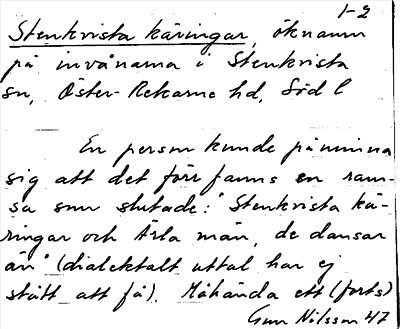 1-2
Stenkvista käringar, öknamn
på invånarna i Stenkvista
sn, Öster-Rekarne hd, Söd l
En person kunde påminna
sig att det förr fanns en ram-
sa som slutade: "Stenkvista kä-
ringar och Ärla män, de dansar
än" (dialektalt uttal har ej
stått att få). Måhända ett (forts)
Gun Nilsson 47